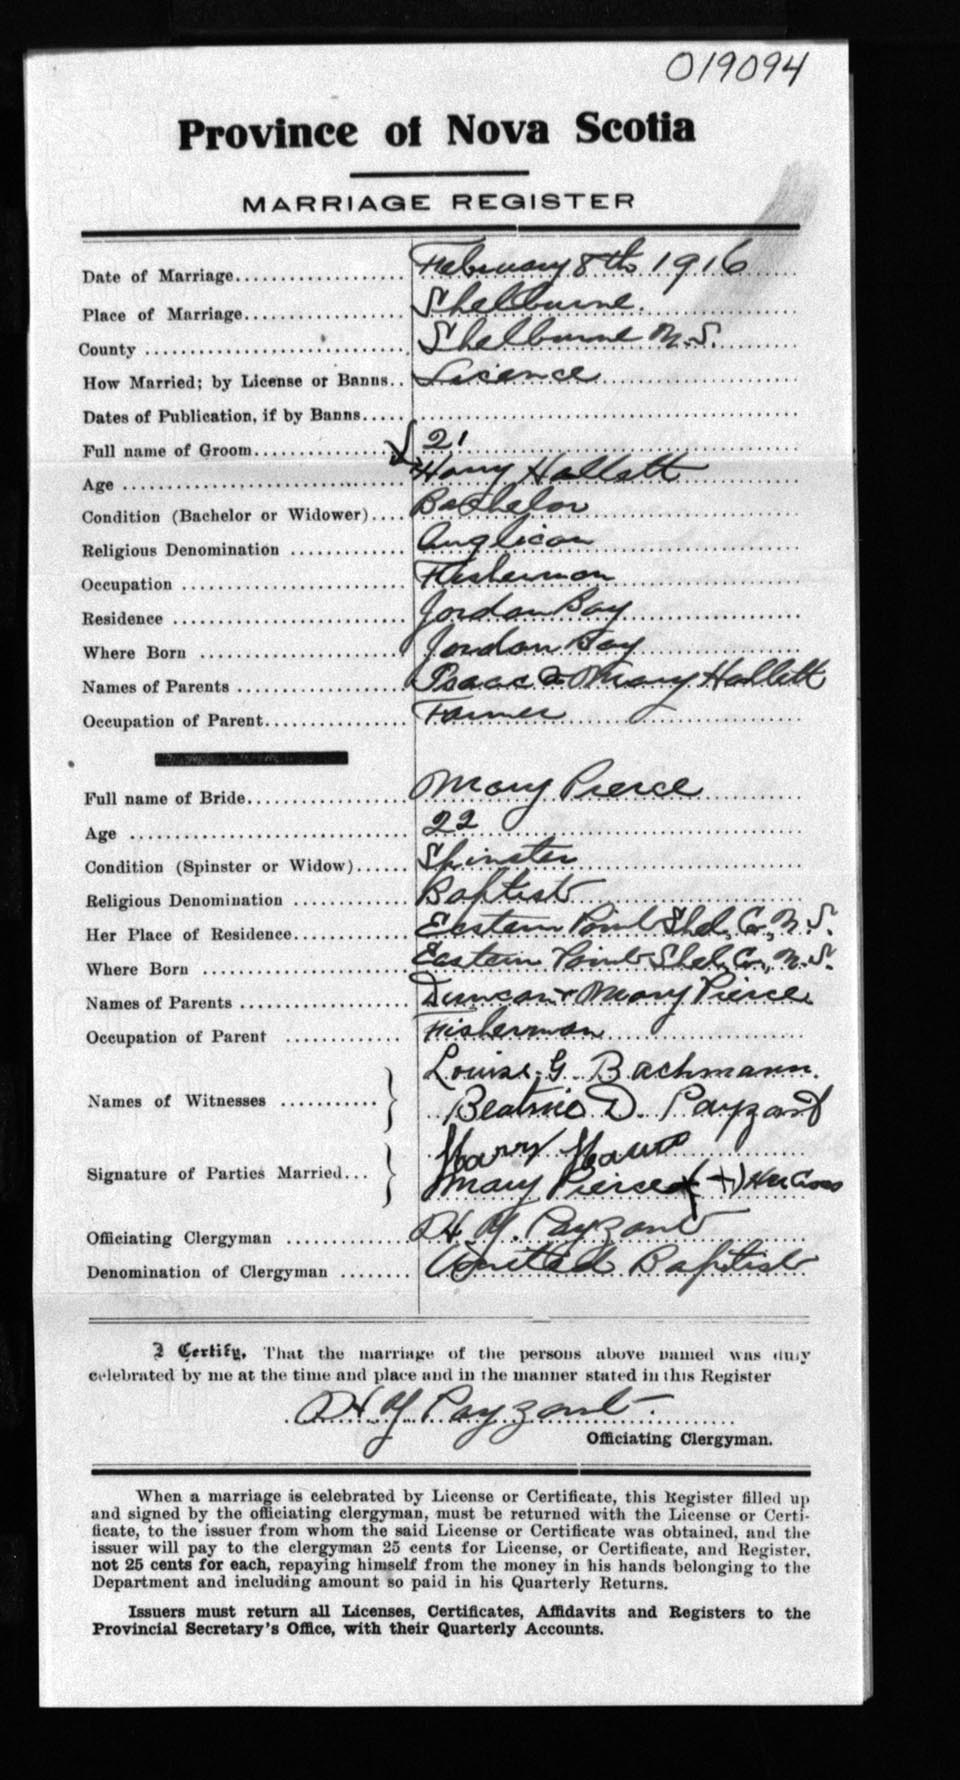 019094
Province of Nova Scotia
MARRIAGE REGISTER
Date of Marriage.................. February 8th 1916
Place of Marriage................. Shelburne.
County ........................... Shelburne N.S.
How Married; by License or Banns.. Licence
Dates of Publication, if by Banns.....
Full name of Groom............... 21
Age ............................ Harry Hallett
Condition (Bachelor or Widower).... Bachelor
Religious Denomination ............ Anglican
Occupation ....................... Fisherman
Residence ........................ Jordan Bay
Where Born ..................... Jordan Bay
Names of Parents ................. Isaac & Mary Hallett
Occupation of Parent.............. Farmer
Full name of Bride................ Mary Pierce
Age ............................ 22
Condition (Spinster or Widow)...... Spinster
Religious Denomination ............ Baptist
Her Place of Residence............ Eastern Point Shel. Co., N.S.
Where Born ..................... Eastern Point Shel. Co., N.S.
Names of Parents ................. Duncan + Mary Pierce
Occupation of Parent ............ Fisherman
Names of Witnesses ........... } Louise G. Bachmann.
Beatrice D. Payzant
Signature of Parties Married... } Harry
Mary Pierce (+) Her Cross
Officiating Clergyman ............ H. Y. Payzant
Denomination of Clergyman ........ United Baptist
I Certify, That the marriage of the persons above named was duly
celebrated by me at the time and place and in the manner stated in this Register
H Y Payzant.
Officiating Clergyman.
When a marriage is celebrated by License or Certificate, this Register filled up
and signed by the officiating clergyman, must be returned with the License or Certi-
ficate, to the issuer from whom the said License or Certificate was obtained, and the
issuer will pay to the clergyman 25 cents for License, or Certificate, and Register,
not 25 cents for each, repaying himself from the money in his hands belonging to the
Department and including amount so paid in his Quarterly Returns.
Issuers must return all Licenses, Certificates, Affidavits and Registers to the
Provincial Secretary's Office, with their Quarterly Accounts.